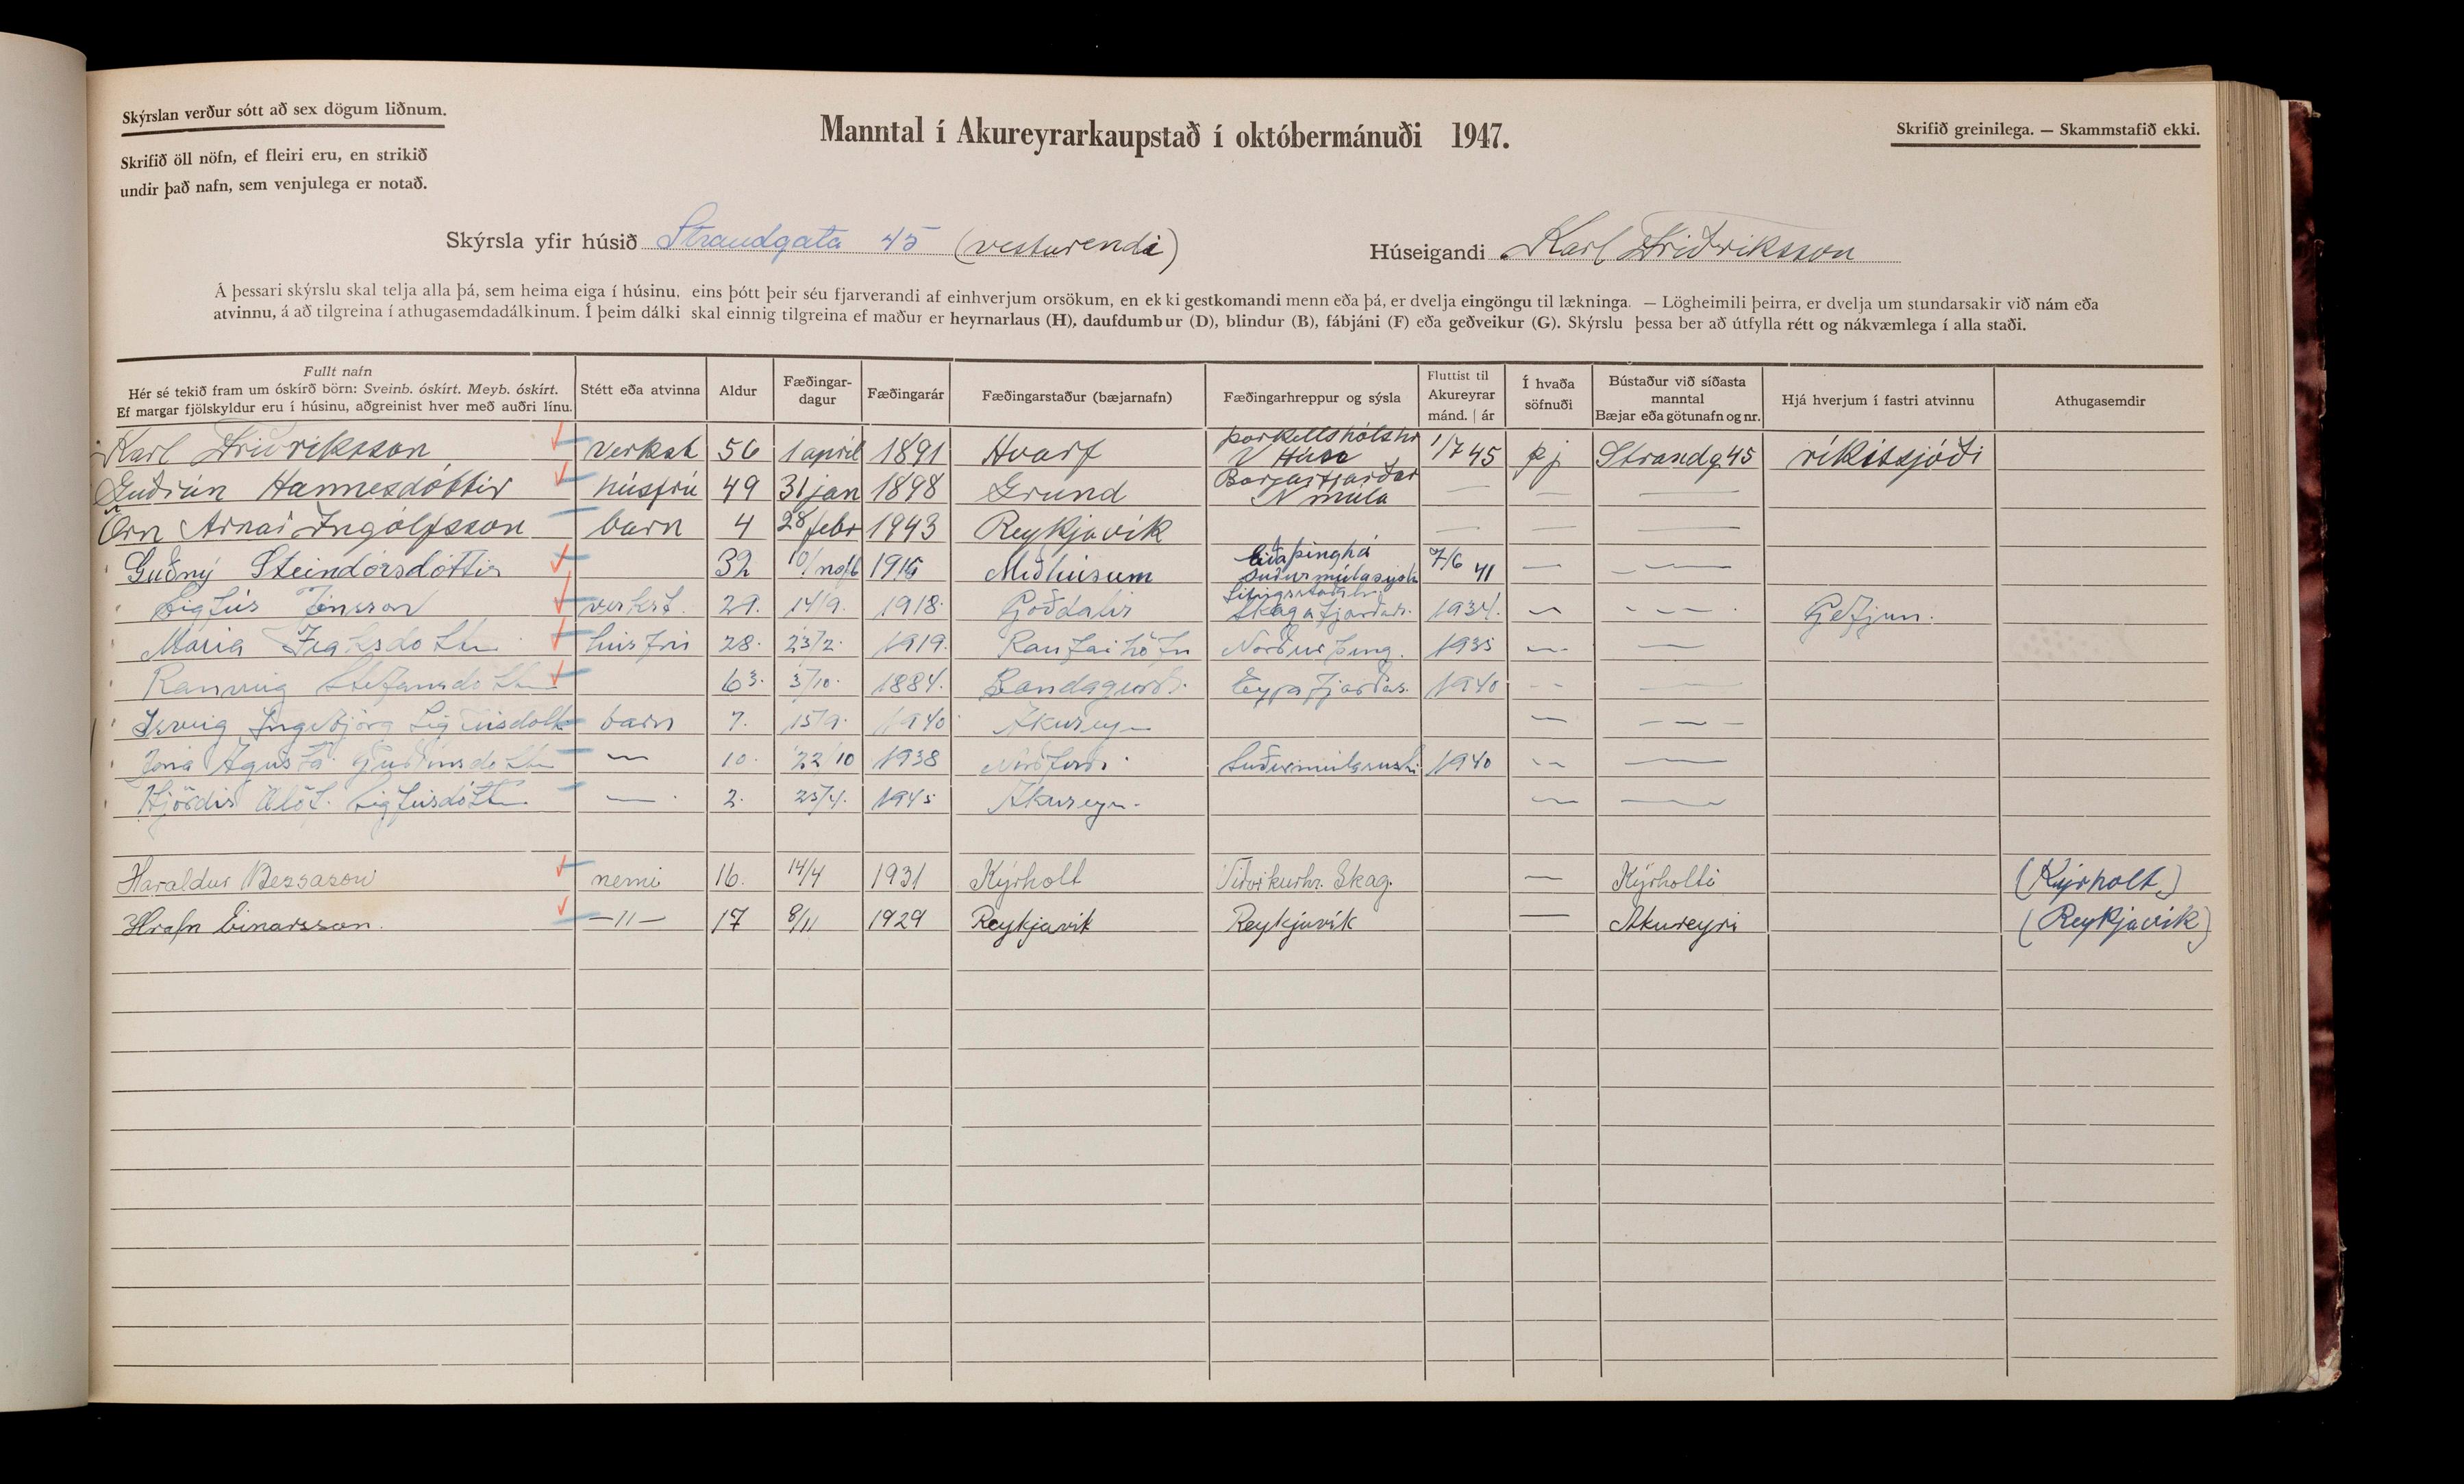 Skýrslan verður sótt að sex dögum liðnum.
Skrifið öll nöfn, ef fleiri eru, en strikið
undir það nafn, sem venjulega er notað.
Manntal í Akureyrarkaupstað í októbermánuði 1947.
Skrifið greinilega. — Skammstafið ekki.
Skýrsla yfir húsið Strandgata 45 (vesturendi)
Húseigandi Karl Friðriksson
Á þessari skýrslu skal telja alla þá, sem heima eiga í húsinu, eins þótt þeir séu fjarverandi af einhverjum orsökum, en ekki gestkomandi menn eða þá, er dvelja eingöngu til lækninga. — Lögheimili þeirra, er dvelja um stundarsakir við nám eða
atvinnu, á að tilgreina í athugasemdadálkinum. Í þeim dálki skal einnig tilgreina ef maður er heyrnarlaus (H), daufdumbur (D), blindur (B), fábjáni (F) eða geðveikur (G). Skýrslu þessa ber að útfylla rétt og nákvæmlega í alla staði.
Fullt nafn
Hér sé tekið fram um óskírð börn: Sveinb. óskírt. Meyb. óskírt.
Ef margar fjölskyldur eru í húsinu, aðgreinist hver með auðri línu.
Stétt eða atvinna
Aldur
Fæðingar-
dagur
Fæðingarár
Fæðingarstaður (bæjarnafn)
Fæðingarhreppur og sýsla
Fluttist til
Akureyrar
mánd. | ár
Í hvaða
söfnuði
Bústaður við síðasta
manntal
Bæjar eða götunafn og nr.
Hjá hverjum í fastri atvinnu
Athugasemdir
Karl Friðriksson verkst 56 1 apríl 1891 Hvarf Þorkelshólshr V Húna 1/7 45 þj Strandg 45 ríkissjóði
Guðrún Hannesdóttir húsfrú 49 31 jan 1898 Grund Borgarfjarðar N múla — — —
Örn Arnar Ingólfsson barn 4 28 febr 1943 Reykjavík — — —
Guðný Steindórsdóttir 32 10/ 1915 Miðhúsum Eiðaþinghá Suðurmúlasýsla 7/6 41 — —
Sigfús Jónsson verkst. 29. 14/9. 1918. Goðdalir Skagafjarðar. 1934. — — Gefjun.
María húsfrú 28. 23/2. 1919. Raufarhöfn Norður þing. 1935 — —
Rannveig Stefánsdóttir 63. 3/10. 1884. Bandagerði. Eyjafjarðar. 1940 — —
Ingibjörg Sigfúsdóttir barn 7. 15/9. 1940. Akureyri — —
Jóna Ágústa — 10. 22/10 1938 Norðfirði. 1940 — —
Hjördís Ólöf Sigfúsdóttir — 2. 25/4. 1945 Akureyri. — —
Haraldur Bessason nemi 16. 14/4 1931 Kýrholt Viðvíkurhr. Skag. — Kýrholti (Kýrholt)
Hrafn Einarsson. —11— 17 8/11 1929 Reykjavík Reykjavík — Akureyri (Reykjavík)